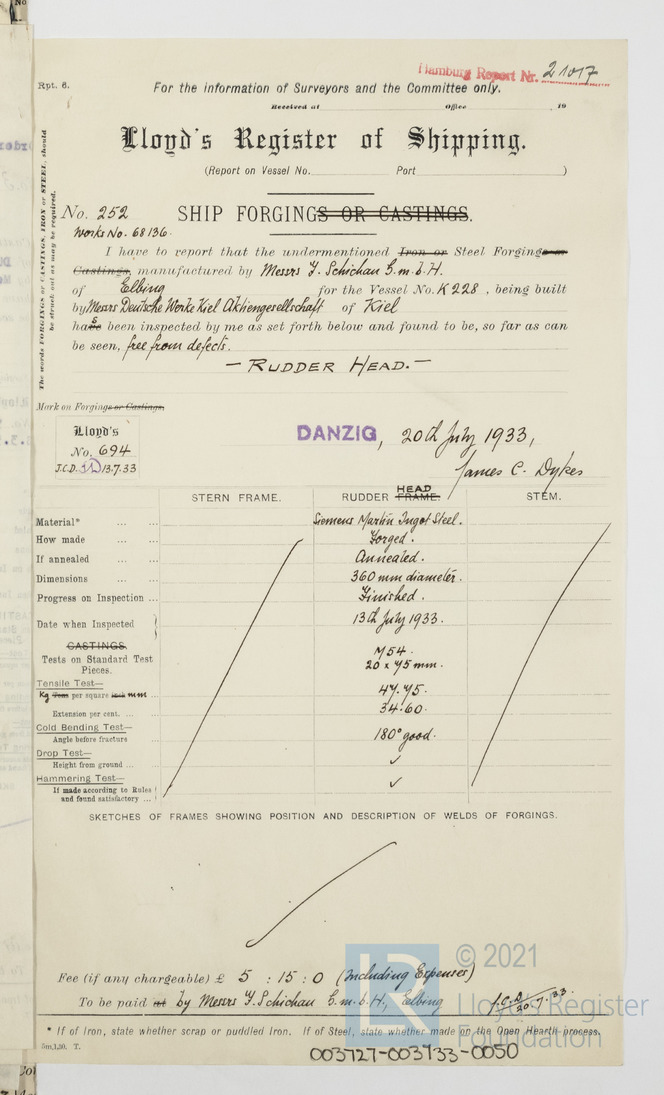 Hamburg Report Nr. 21017
Rpt. 6.
For the information of Surveyors and the Committee only.
Received at Office , 19
Lloyd's Register of Shipping.
(Report on Vessel No. Port )
The words FORGINGS or CASTINGS, IRON or STEEL, should be struck out as may be required.
No. 252 SHIP FORGINGS OR CASTINGS.
Works No. 68136.
I have to report that the undermentioned Iron or Steel Forgings or
Castings, manufactured by Messrs F. Schichau G.m.b.H.
of Elbing for the Vessel No. K 228, being built
by Messrs Deutsche Werke Kiel Aktiengesellschaft of Kiel
has been inspected by me as set forth below and found to be, so far as can
be seen, free from defects.
— RUDDER HEAD. —
Mark on Forgings or Castings,
Lloyd's
No. 694
J.C.D. 13.7.33
DANZIG, 20th July 1933,
James C. Dykes
STERN FRAME. RUDDER HEAD FRAME. STEM.
Material* ... ... Siemens Martin Ingot Steel.
How made ... ... Forged.
If annealed ... ... Annealed.
Dimensions ... ... 360 mm diameter.
Progress on Inspection ... Finished.
Date when Inspected 13th July 1933.
CASTINGS.
Tests on Standard Test
Pieces.
M54.
20 x 75 mm.
Tensile Test—
Kg Tons per square inch mm ... 47.75.
Extension per cent. ... ... 34.60.
Cold Bending Test—
Angle before fracture 180° good.
Drop Test—
Height from ground ... ... ✓
Hammering Test—
If made according to Rules
and found satisfactory ... ✓
SKETCHES OF FRAMES SHOWING POSITION AND DESCRIPTION OF WELDS OF FORGINGS.
Fee (if any chargeable) £ 5 : 15 : 0 (Including Expenses)
To be paid at by Messrs F. Schichau G.m.b.H., Elbing J.C.D. 20.7.33.
* If of Iron, state whether scrap or puddled Iron. If of Steel, state whether made on the Open Hearth process.
5m,1,30. T.
© 2021
Lloyd's Register
Foundation
003727-003733-0050